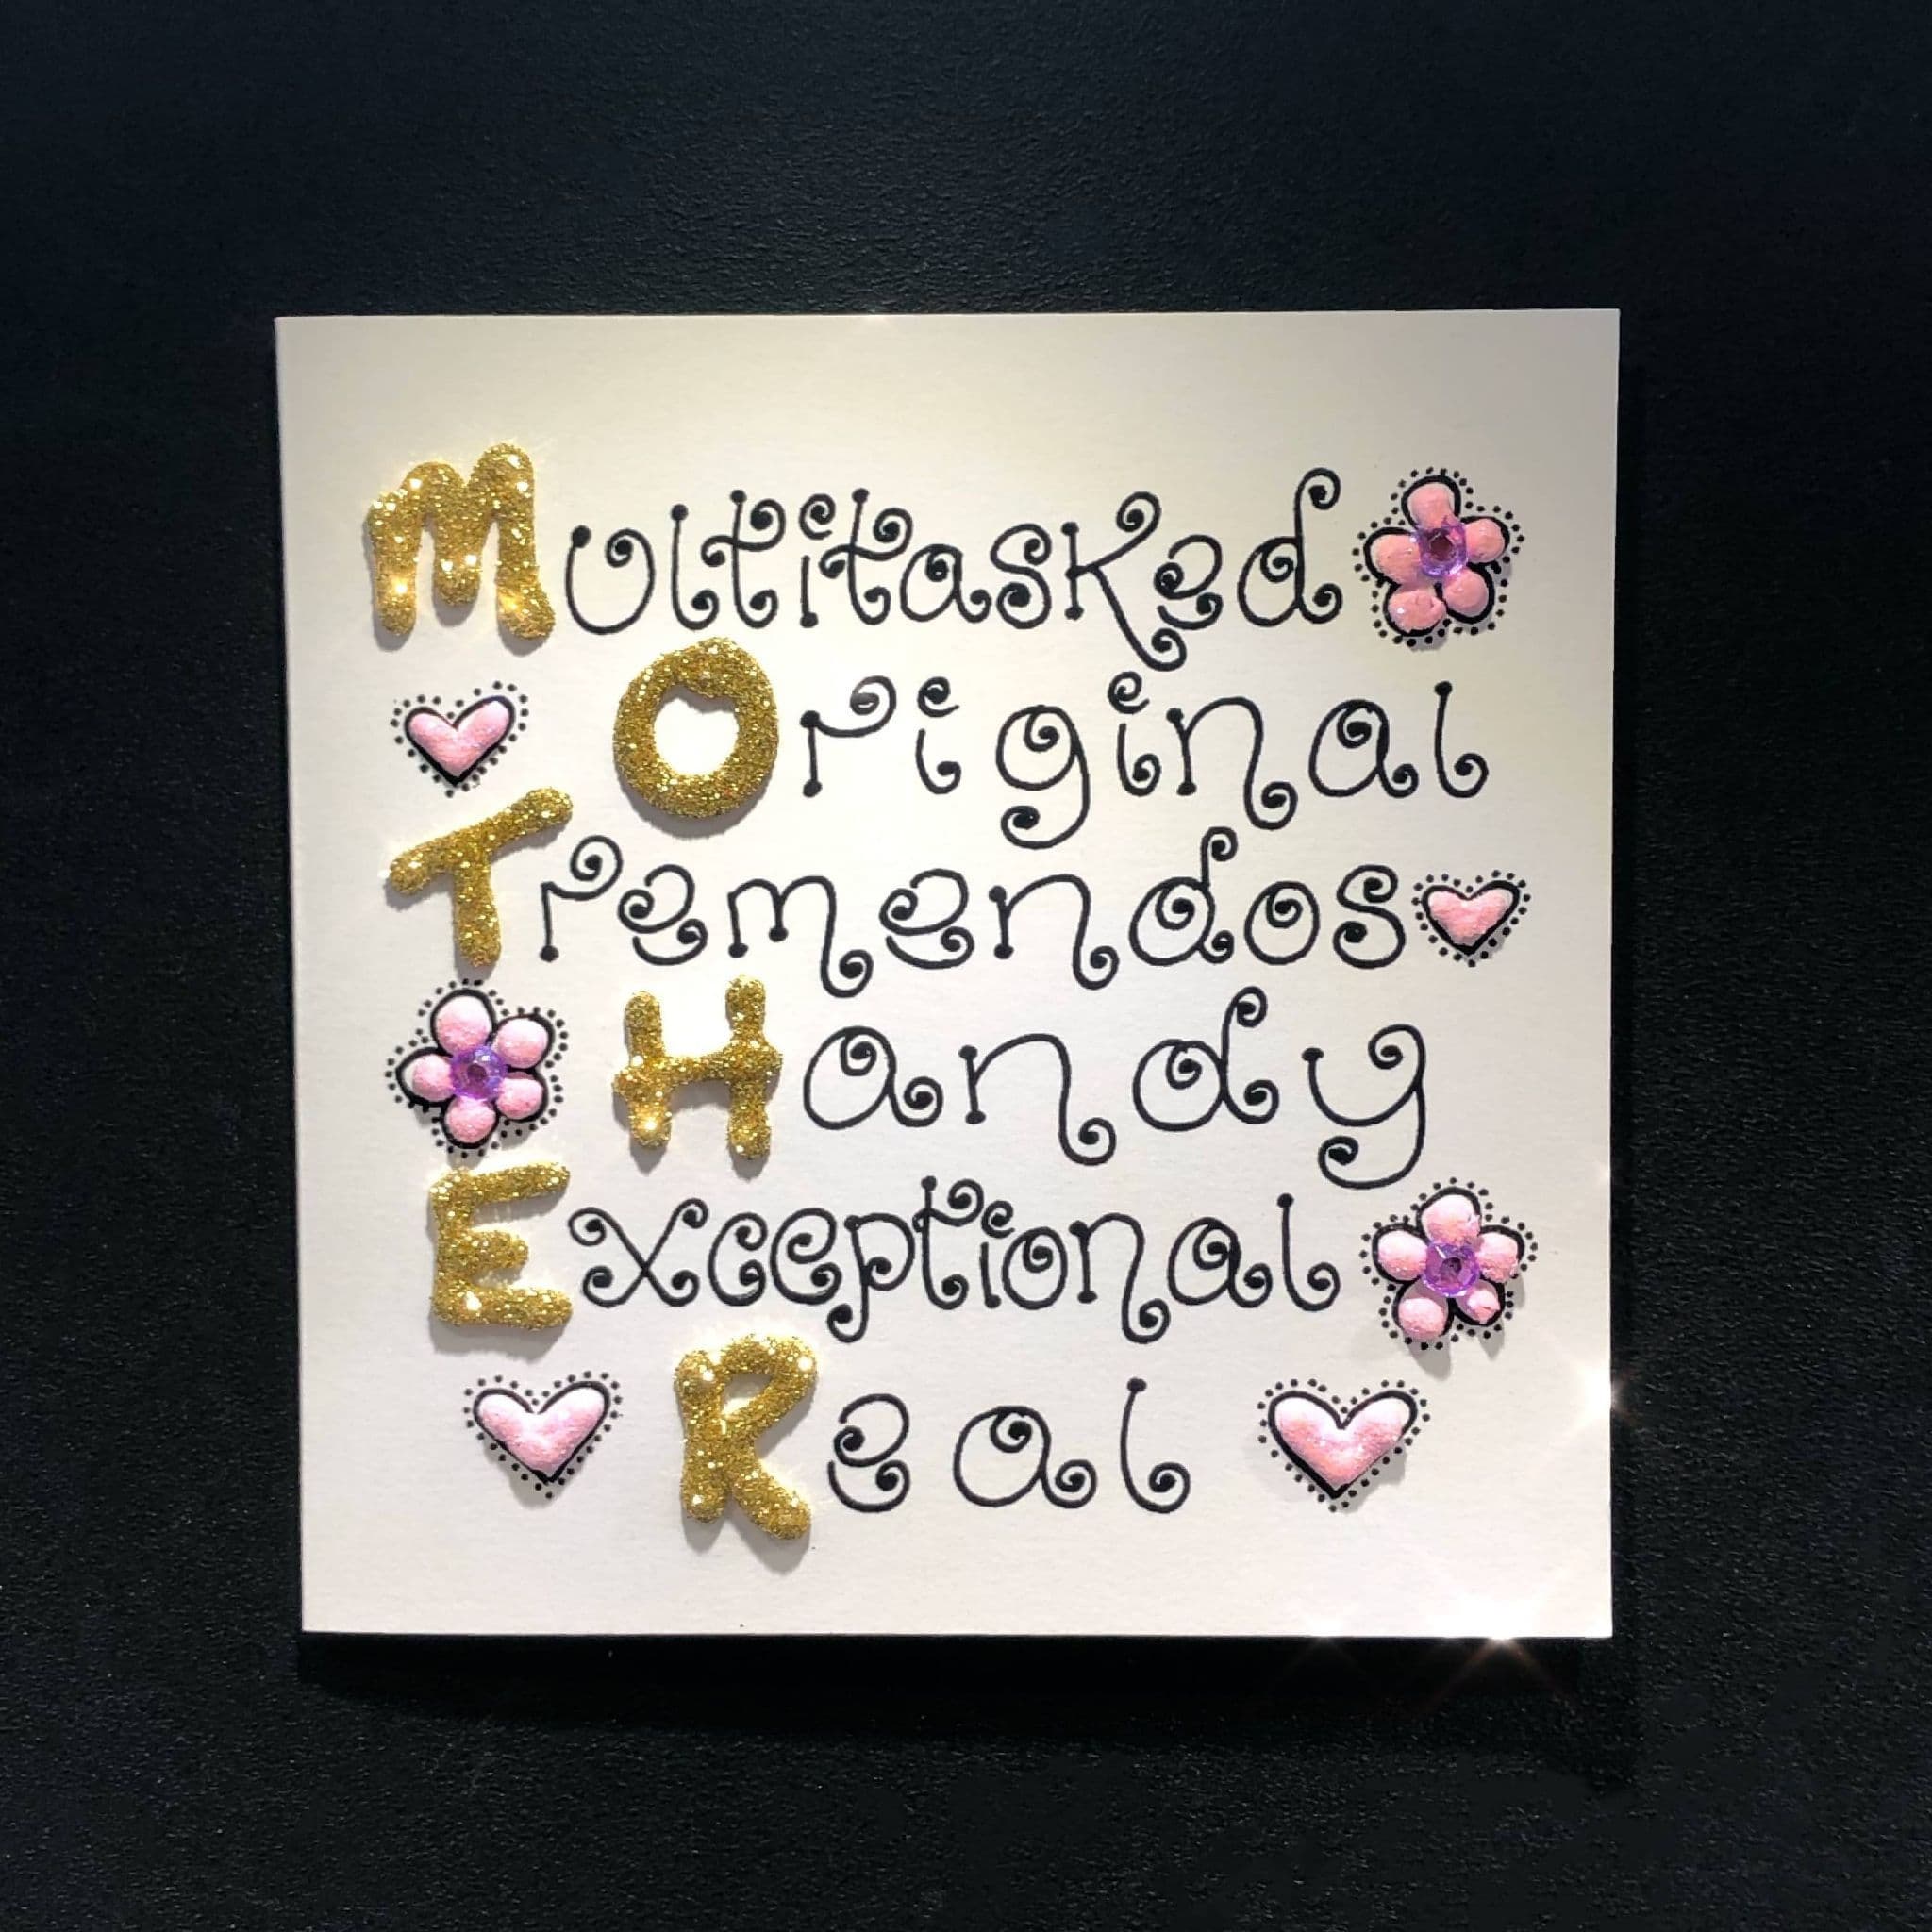 Multitasked
Original
Tremendos
Handy
Exceptional
Real